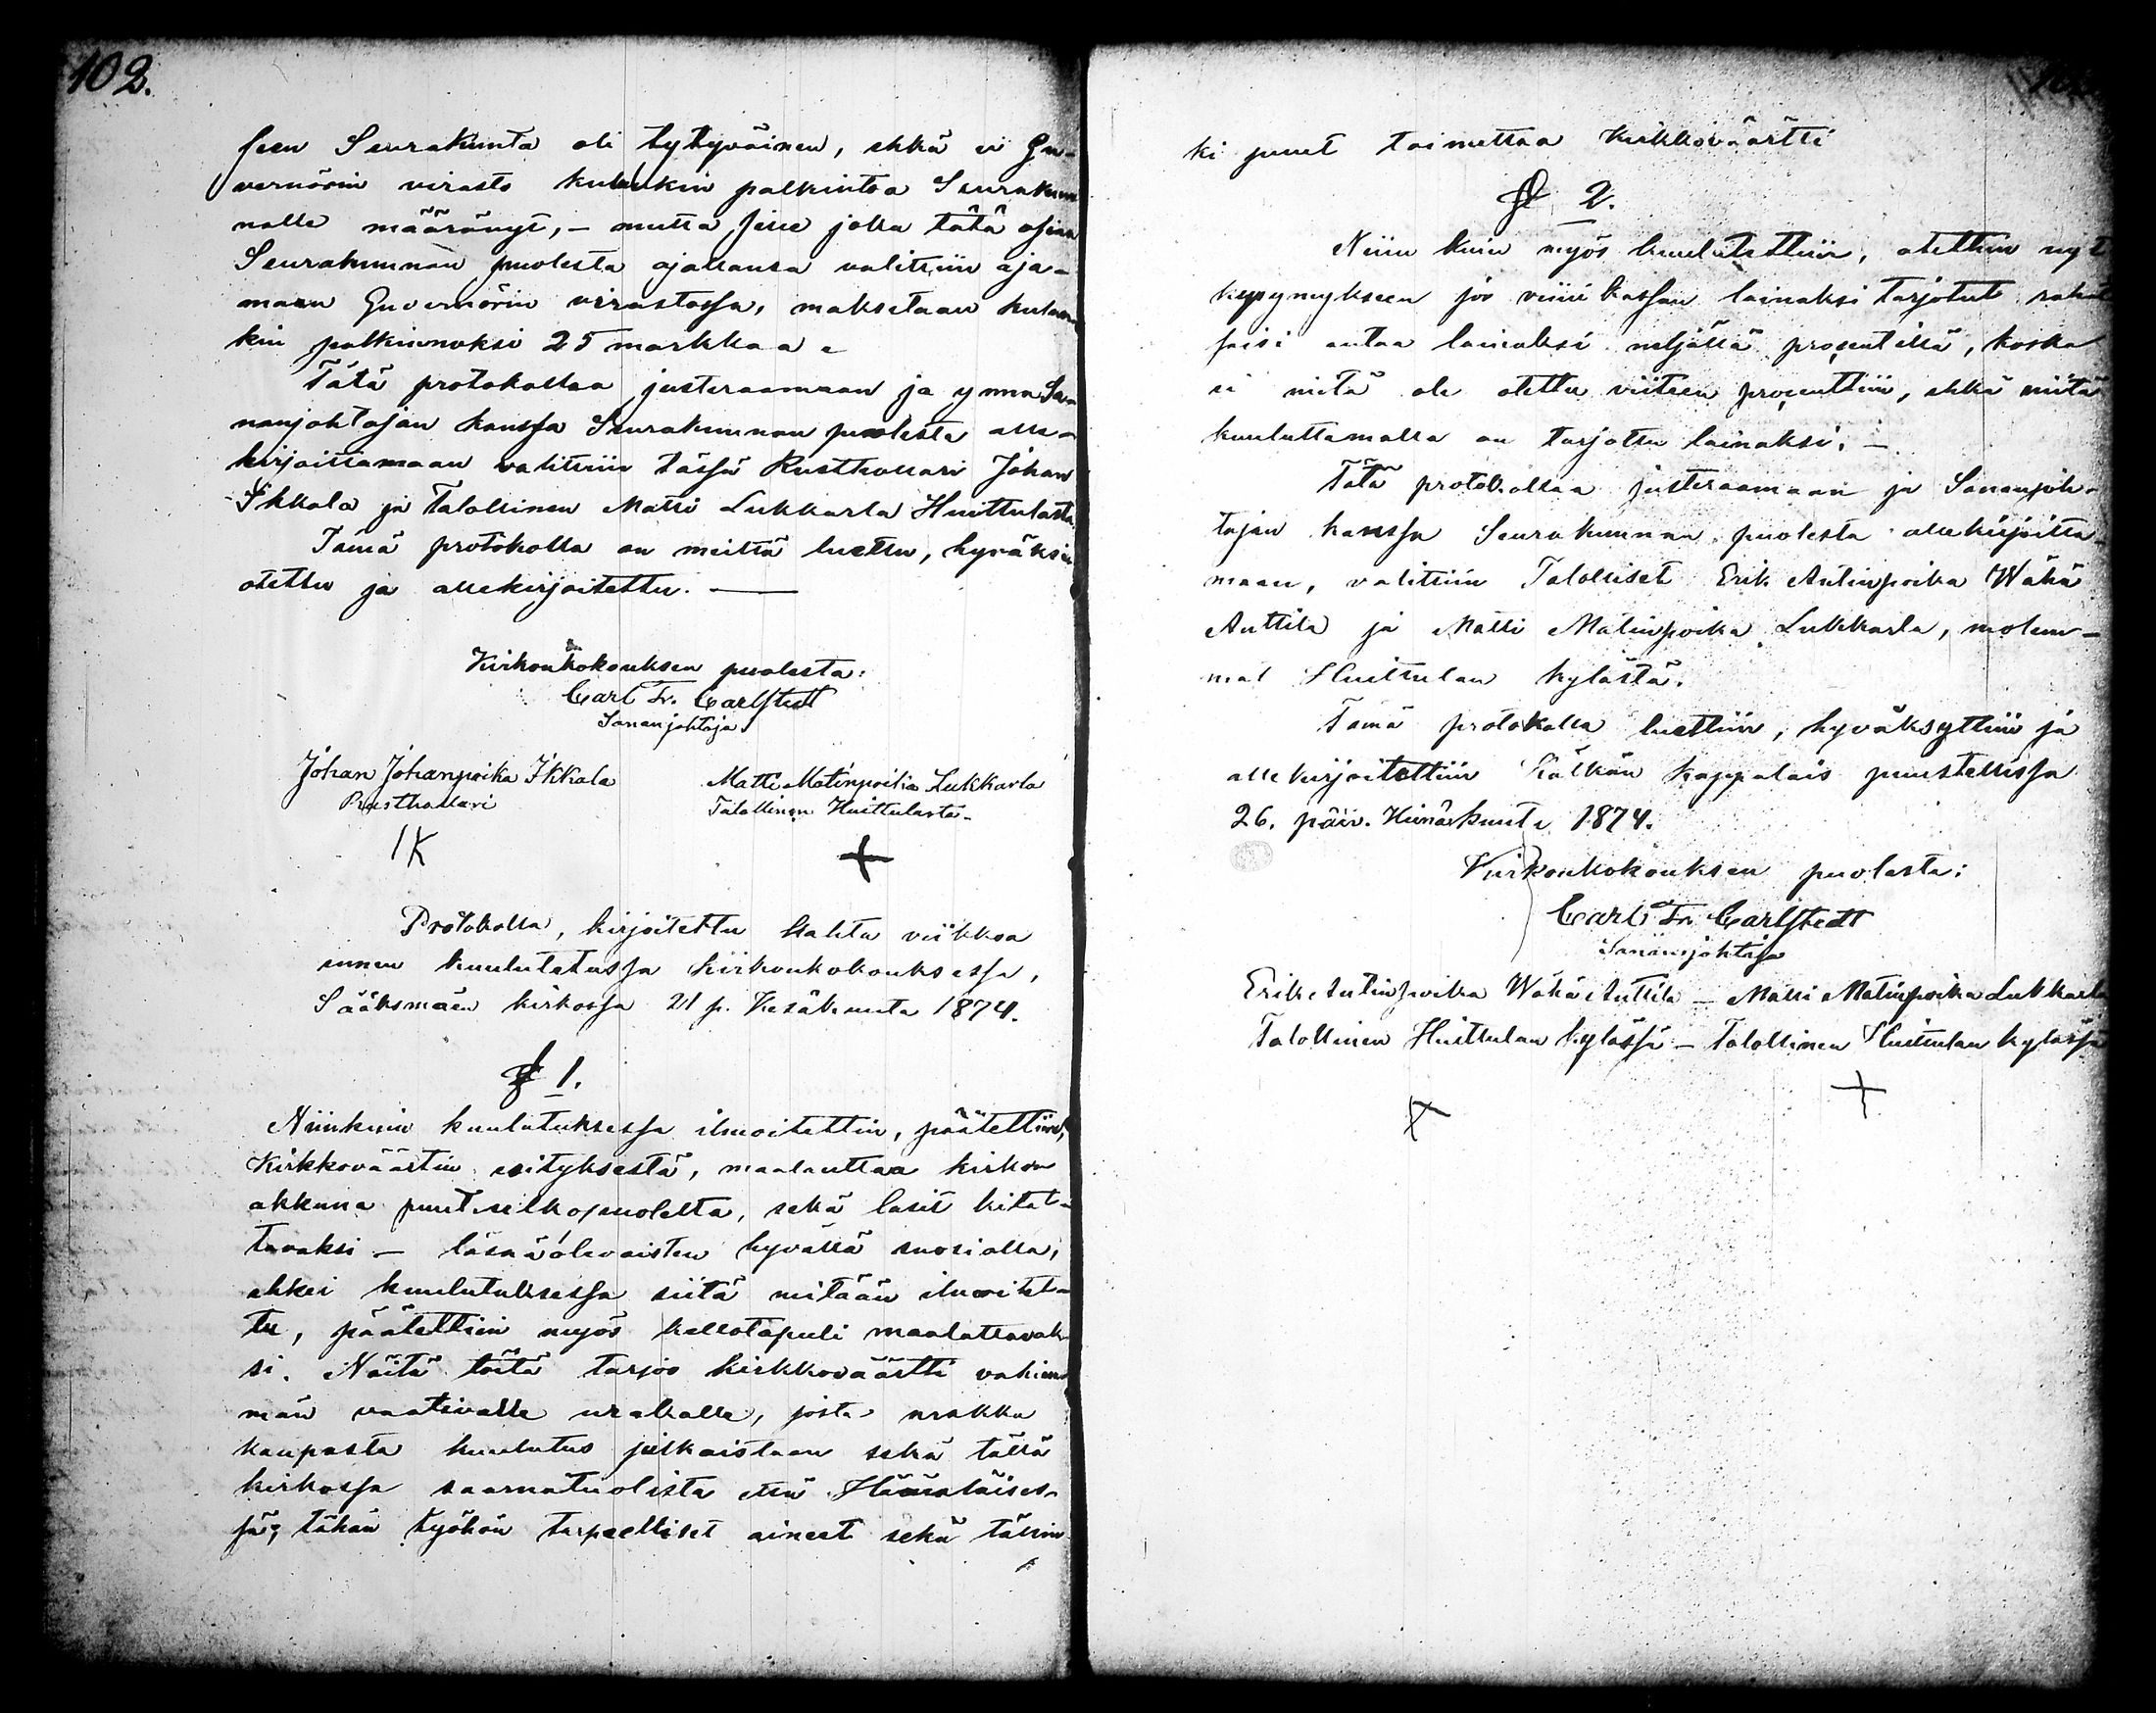 102.
seen Seurakunta oli tytyväinen, ehkä ei Gu-
vernöörin virasto kulukin palkintoa Seurakun
nalle määrännyt, – mutta sille joka tätä asiaa
Seurakunnan puolesta ajallansa valittiin aja-
maan Guvernörin virastossa, maksetaan kulun
kin palkinnoksi 25 markkaa.
Tätä protokollaa justeraamaan ja ynnä Sa-
nanjohtajan kanssa Seurakunnan puolesta alle-
kirjoittamaan valittiin tässä Rusthollari Johan
Ikkala ja Talollinen Matti Lukkarla Huittulasta.
Tämä protokolla on meiltä luettu, hyväksi
otettu ja allekirjoitettu. —
Kirkonkokouksen puolesta:
Carl Fr. Carlstedt
Sananjohtaja
Johan Johanpoika Ikkala Matti Matinpoika Lukkarla
Rusthollari Talollinen Huittulasta.
IK +
Protokolla, kirjoitettu kahta viikkoa
ennen kuulutetussa kirkonkokouksessa,
Sääksmäen kirkossa 21 p. Kesäkuuta 1874.
§ 1.
Niinkuin kuulutuksessa ilmoitettiin, päätettiin,
Kirkkoväärtin esityksestä, maalauttaa kirkon
akkuna puut selkopuolelta, sekä lasit kitat-
tavaksi – läsnä olevaisten hyvällä suosiolla,
ehkei kuulutuksessa siitä mitään ilmoitet-
tu, päätettiin myös kellotapuli maalattavak
si. Näitä töitä tarjoo kirkkoväärtti vahim
män vaativalle urakalle, josta urakka
kaupasta kuulutus julkaistaan sekä tällä
kirkossa saarnatuolista että Hämäläises-
sä; tähän työhön tarpeelliset aineet sekä tällin
ki puut toimittaa kirkkoväärtti
§ 2.
Niin kuin myös kuulutettiin, otettiin nyt
kysymykseen jos viini kassan lainaksi tarjotut rahat
saisi antaa lainaksi neljällä prosentillä, koska
ei niitä ole otettu viiteen prosenttiin, ehkä niitä
kuuluttamalla on tarjottu lainaksi. –
Tätä protokollaa justeraamaan ja Sananjoh-
tajan kanssa Seurakunnan puolesta allekirjoitta-
maan, valittiin Talolliset Erik Antinpoika Wähä
Anttila ja Matti Matinpoika Lukkarla, molem-
mat Huittulan kylästä.
Tämä protokolla luettiin, hyväksyttiin ja
allekirjoitettiin Kälkän kappalais puustellissa
26. päiv. Heinäkuuta 1874.
Kirkonkokouksen puolesta:
Carl Fr. Carlstedt
Sananjohtaja
Erik Antinpoika Wähä Anttila – Matti Matinpoika Lukkarla
Talollinen Huittulan kylässä – Talollinen Huittulan kylässä
+ +